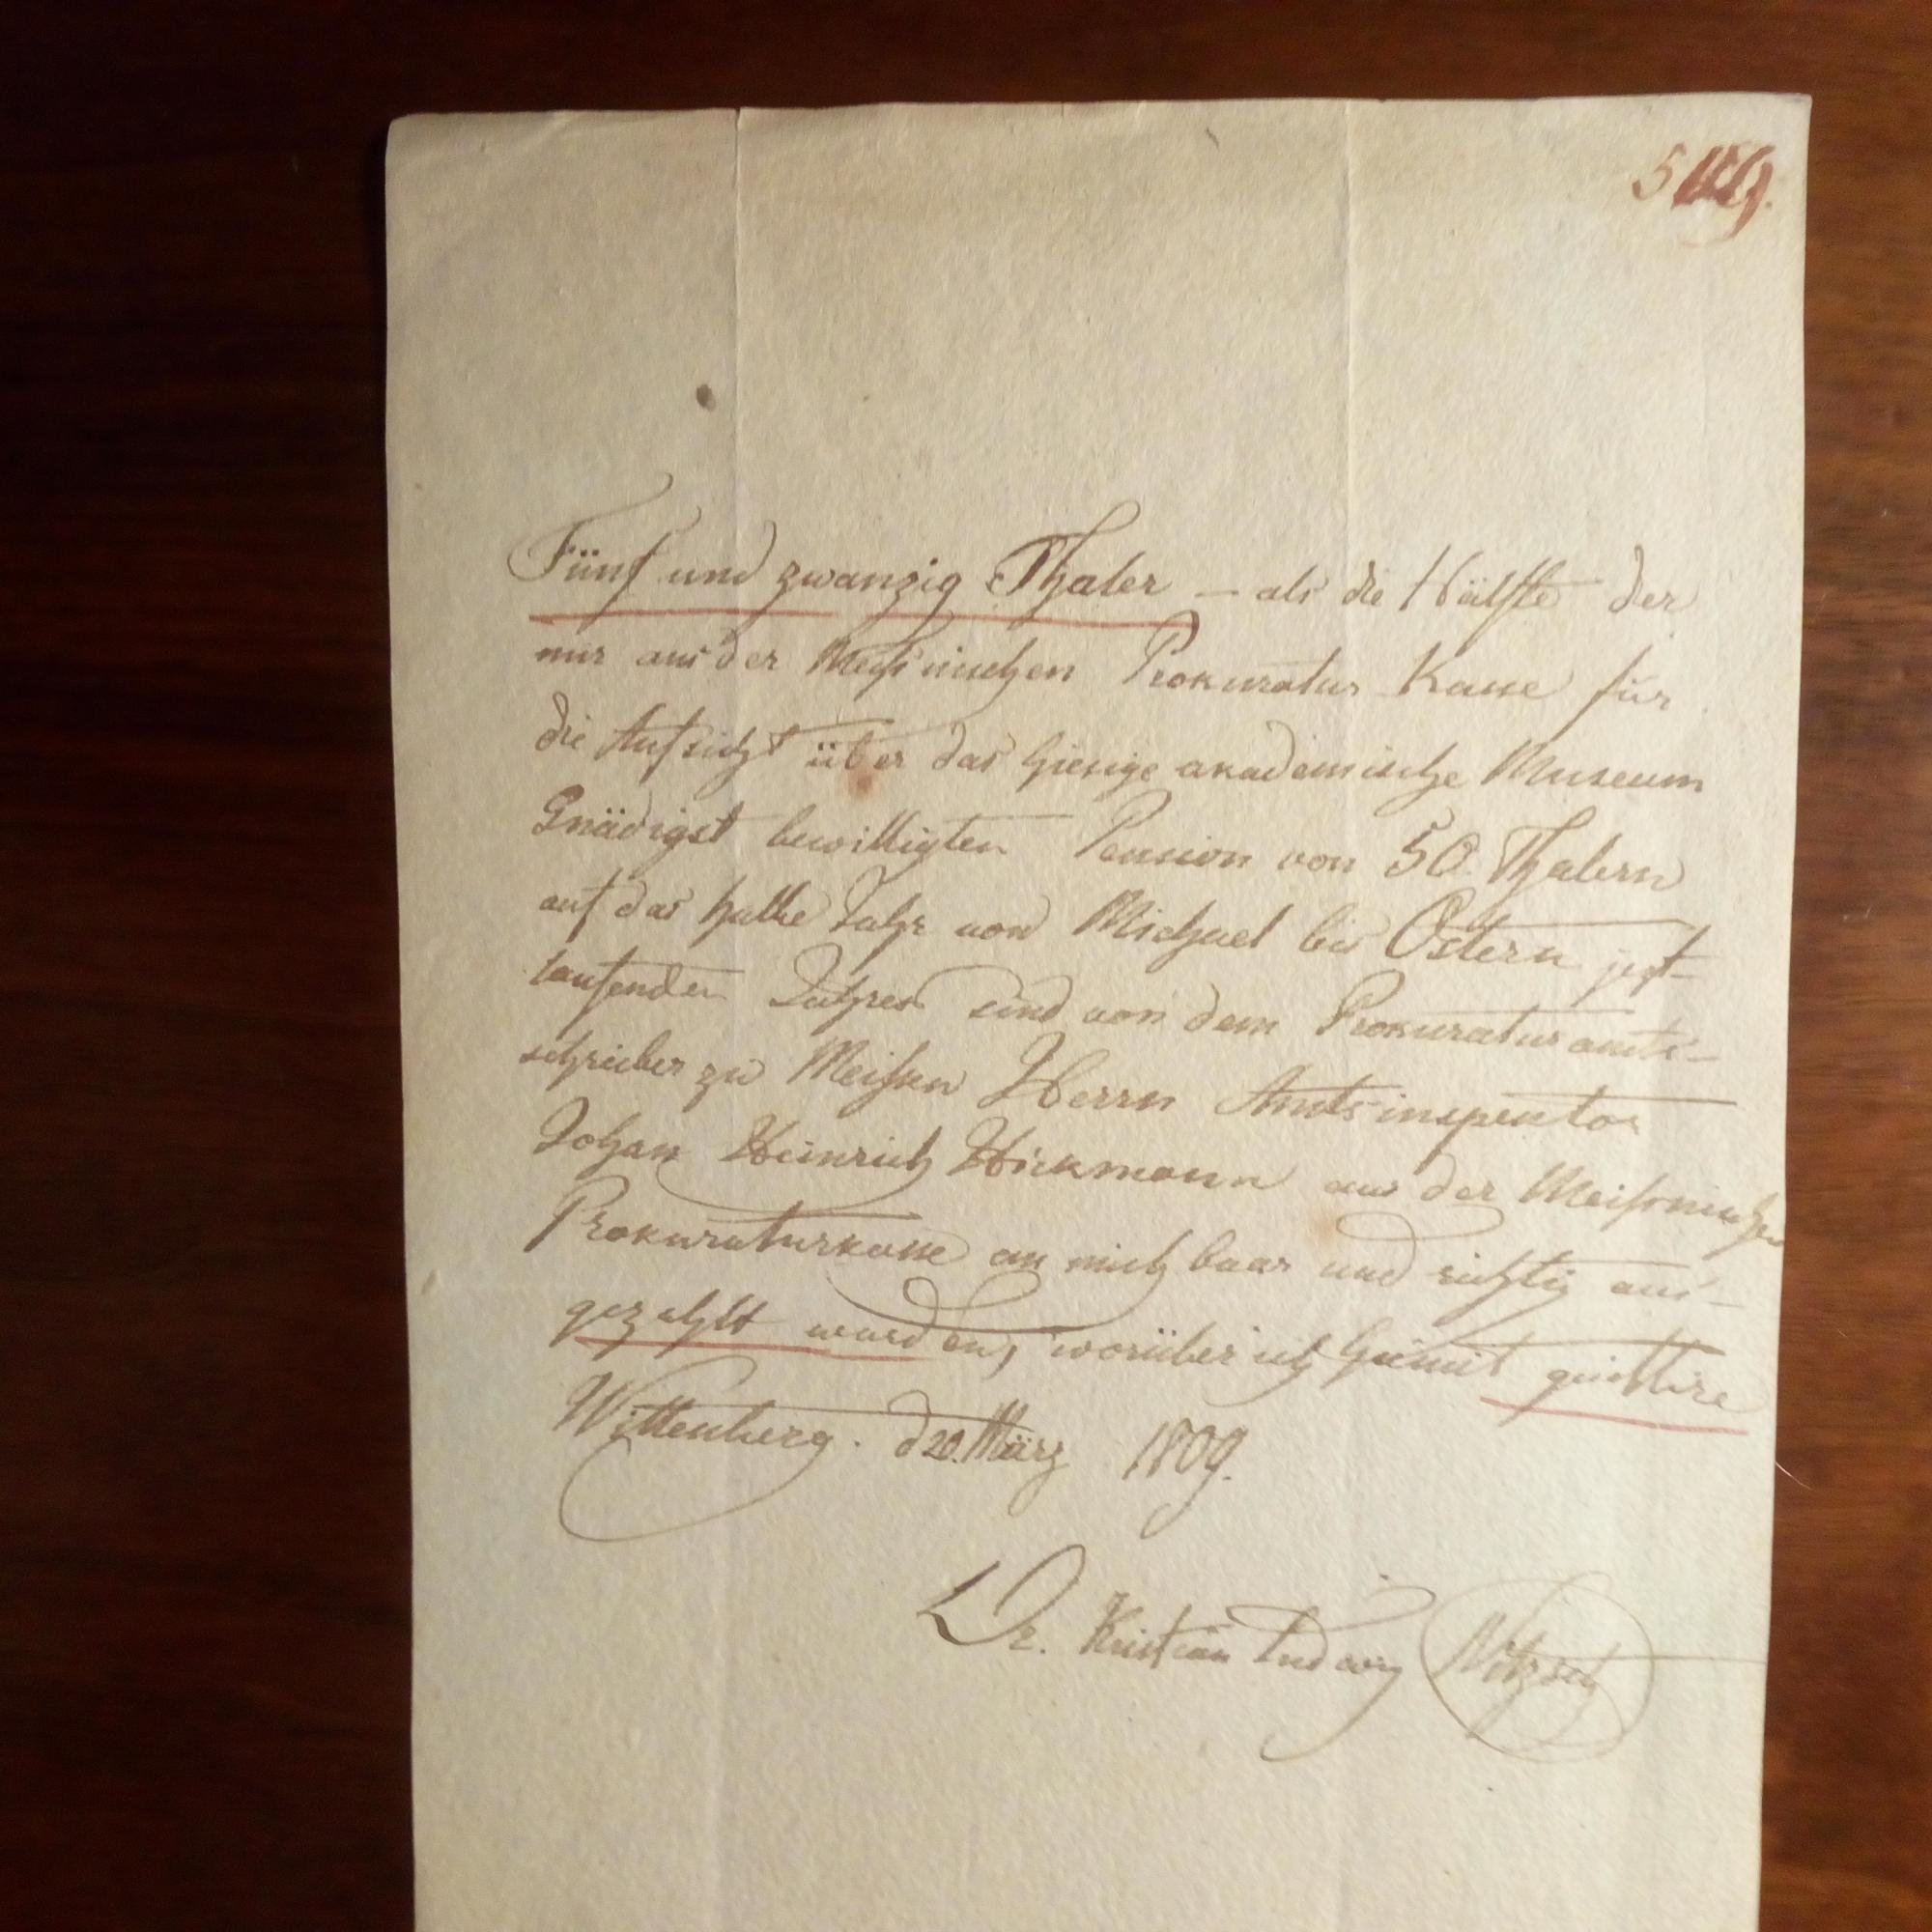 Fünf und zwanzig Thaler – als die Hälfte der
mir aus der Meißnischen Prokuratur Kasse für
die Aufsicht über das hiesige akademische Museum
Gnädigst bewilligten Pension von 50. Thalern
auf das halbe Jahr von Michael bis Ostern jezt-
laufenden Jahres sind von dem Prokuraturamts-
schreiber zu Meißen Herrn Amtsinspektor
Johan Heinrich Hickmann aus der Meißnischen
Prokuraturkasse an mich baar und richtig aus-
gezahlt worden, worüber ich hiermit quittire
Wittenberg. d 20. März 1809.
Dr. Kristian Ludwig Nitzsch